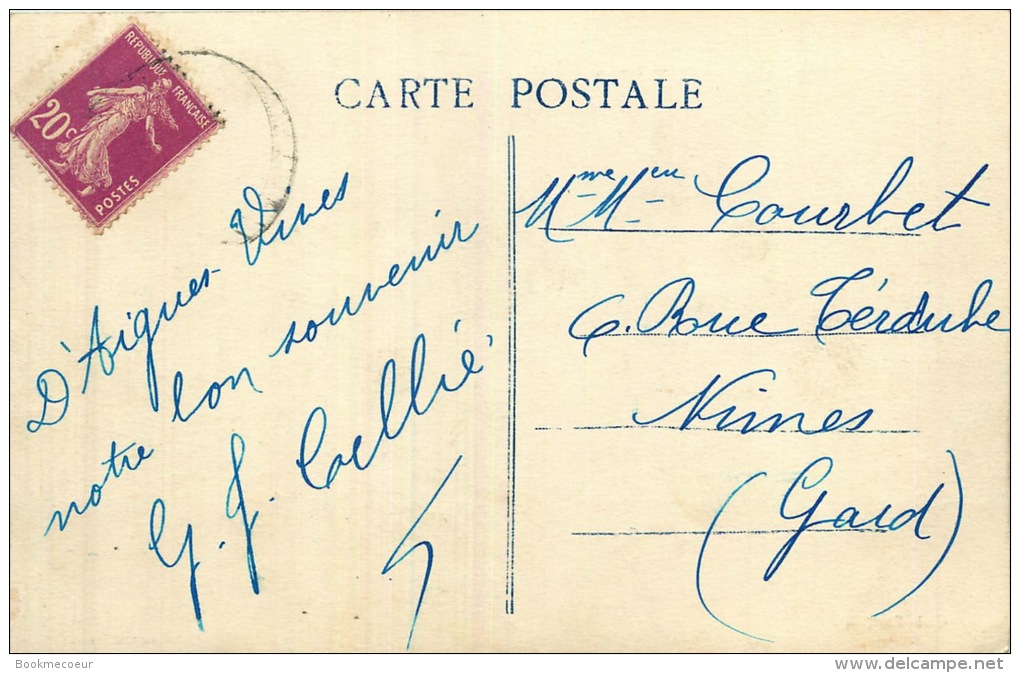 REPUBLIQUE FRANÇAISE
20c
POSTES
CARTE POSTALE
D'Aigues-Vives
notre bon souvenir
G. J. Collié
Mme Men Courbet
6. Rue Térdube
Nimes
(Gard)
Bookmecoeur
www.delcampe.net